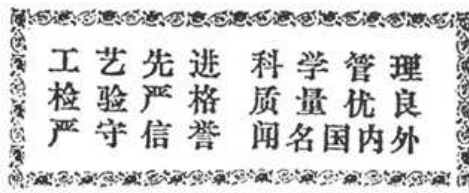 工艺先进 科学管理
检验严格 质量优良
严守信誉 闻名国内外